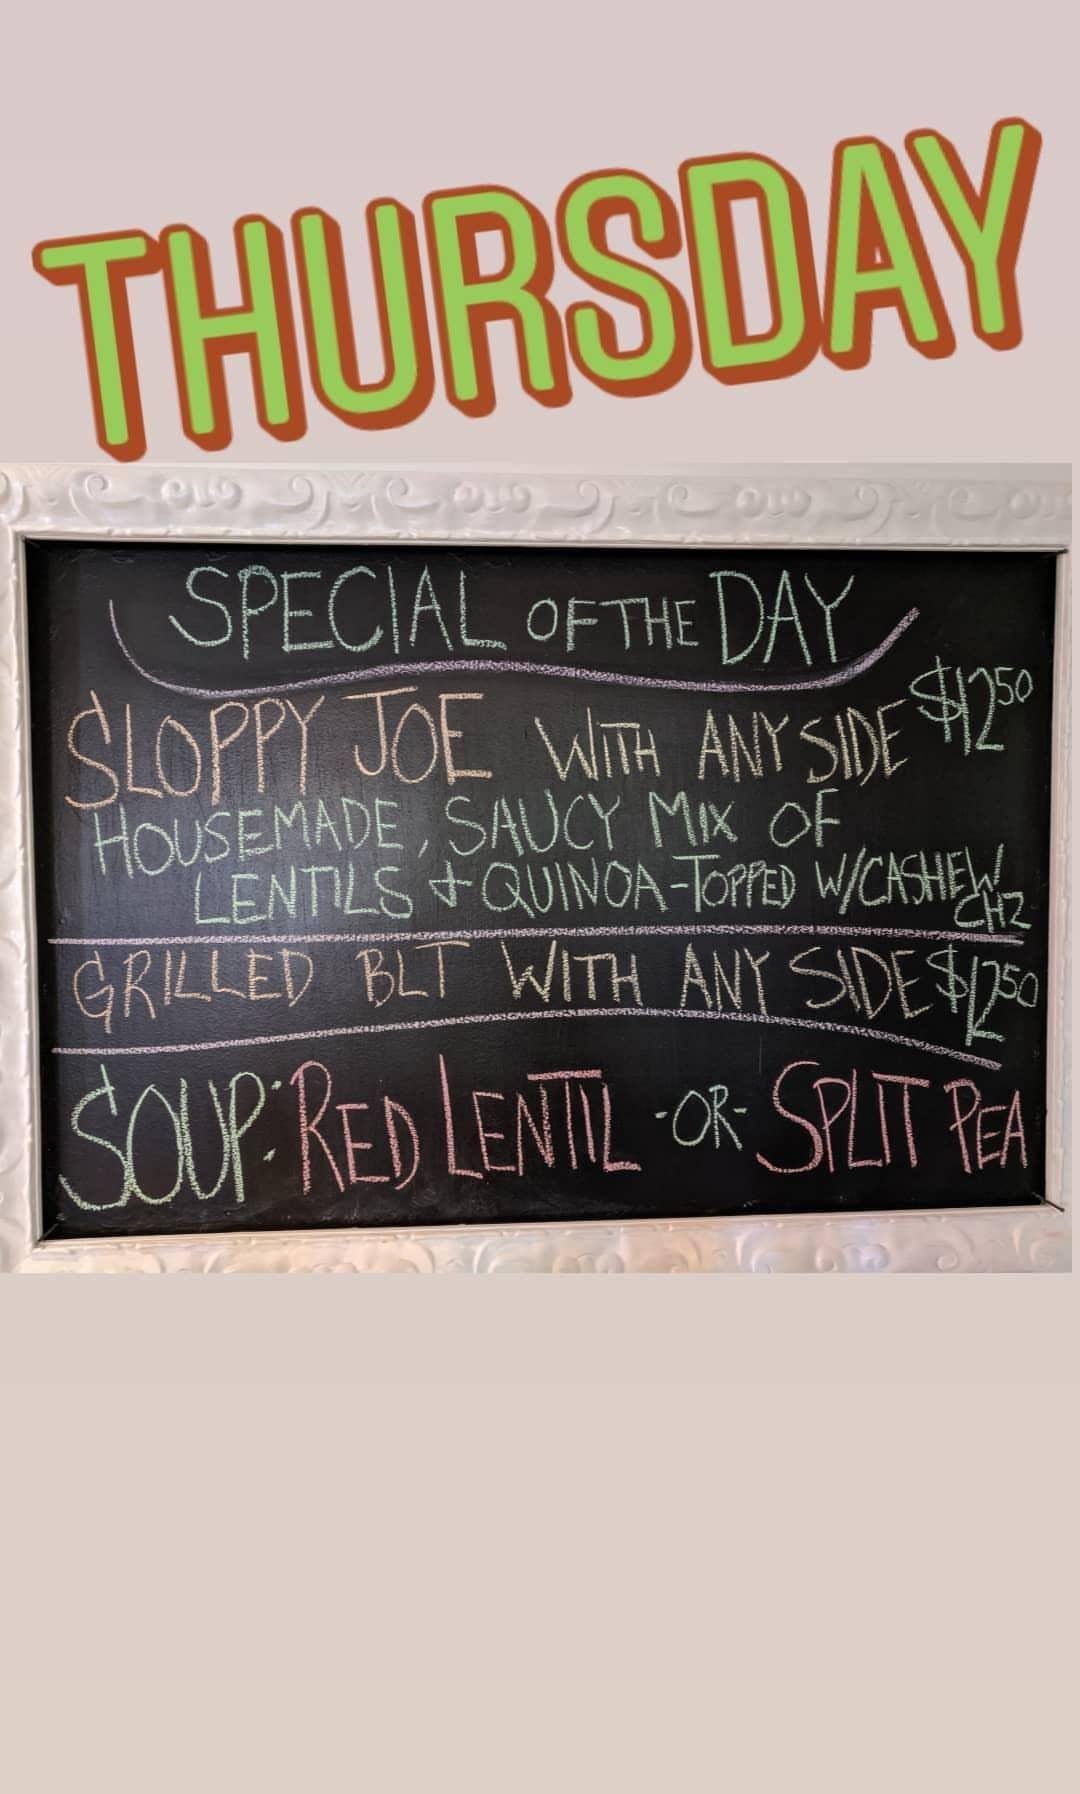 THURSDAY
SPECIAL OF THE DAY
SLOPPY JOE WITH ANY SIDE $1250
HOUSEMADE, SAUCY MIX OF
LENTILS + QUINOA-TOPPED W/CASHEW
CHZ
GRILLED BLT WITH ANY SIDE $1250
SOUP: RED LENTIL -OR- SPLIT PEA